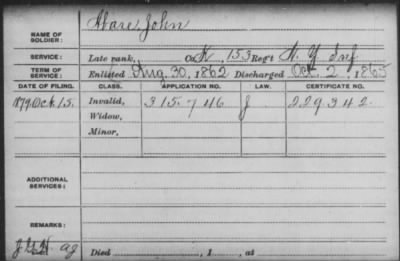 NAME OF SOLDIER: Abare, John
SERVICE: Late rank, Co. K, 153 Reg't N. Y. Inf
TERM OF SERVICE: Enlisted Aug. 30, 1862 Discharged Oct. 2, 1865
DATE OF FILING. CLASS. APPLICATION NO. LAW. CERTIFICATE NO.
1879 Oct. 15. Invalid, 315.746 J. 229342.
Widow,
Minor,
ADDITIONAL SERVICES:
REMARKS:
Died , 1 , at